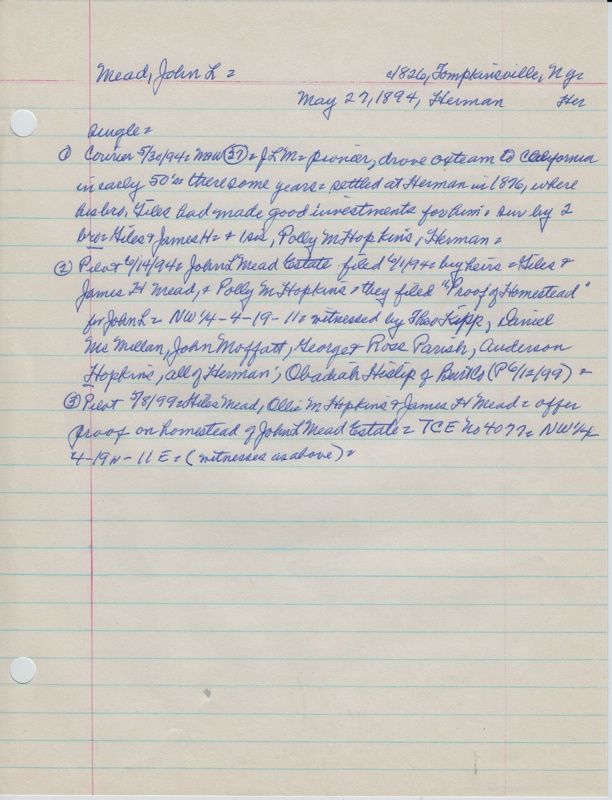 Mead, John L = c1826, Tompkinsville, Ny=
May 27, 1894, Herman Her
single=
① Courier 5/30/94= M@W (27)= JLM= pioneer, drove oxteam to California
in early 50's= there some years= settled at Herman in 1876, where
his bro. Giles had made good investments for him= sur by 2
bro= Giles & James H= & 1 sis, Polly M Hopkins, Herman=
② Pilot 6/14/94= John L Mead Estate filed 6/1/94= by heirs= Giles &
James H Mead, & Polly M Hopkins= they filed "Proof of Homestead"
for John L= NW 1/4-4-19-11= witnessed by Theo Kipp, Daniel
McMillan, John Moffatt, George & Ross Parish, Anderson
Hopkins, all of Herman; Obadiah Hislip of Burt Co (P 6/12/99) =
③ Pilot 5/8/99= Giles Mead, Ollie M Hopkins & James H Mead= offer
proof on homestead of John L Mead Estate= TCE No 4077= NW 1/4
4-19N-11E= (witnesses as above)=